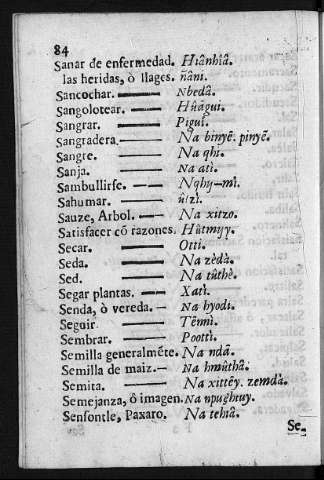 84
Sanar de enfermedad. Hiânhiâ.
las heridas, ò llages. ñâni.
Sancochar. —— Nbedâ.
Sangolotear. —— Hûâgui.
Sangrar. —— Piguî.
Sangradera. —— Na binyẽ. pinyẽ.
Sangre. —— Na qhi.
Sanja. —— Na atì.
Sambullirse. —— Nqhy-mì.
Sahumar. —— ûizì.
Sauze, Arbol. —— Na xitzo.
Satisfacer cõ razones. Hûtmyy.
Secar. —— Otti.
Seda. —— Na zèdà.
Sed. —— Na tûthè.
Segar plantas. —— Xatì.
Senda, ò vereda. — Na hyodi.
Seguir. —— Tẽnnì.
Sembrar. —— Poottì.
Semilla generalmẽte. Na ndã.
Semilla de maiz. — Na hmûthâ.
Semita. —— Na xittẽy. zemdà.
Semejanza, ô imagen. Na npughtuy.
Sensontle, Paxaro. Na tehiâ.
Se-